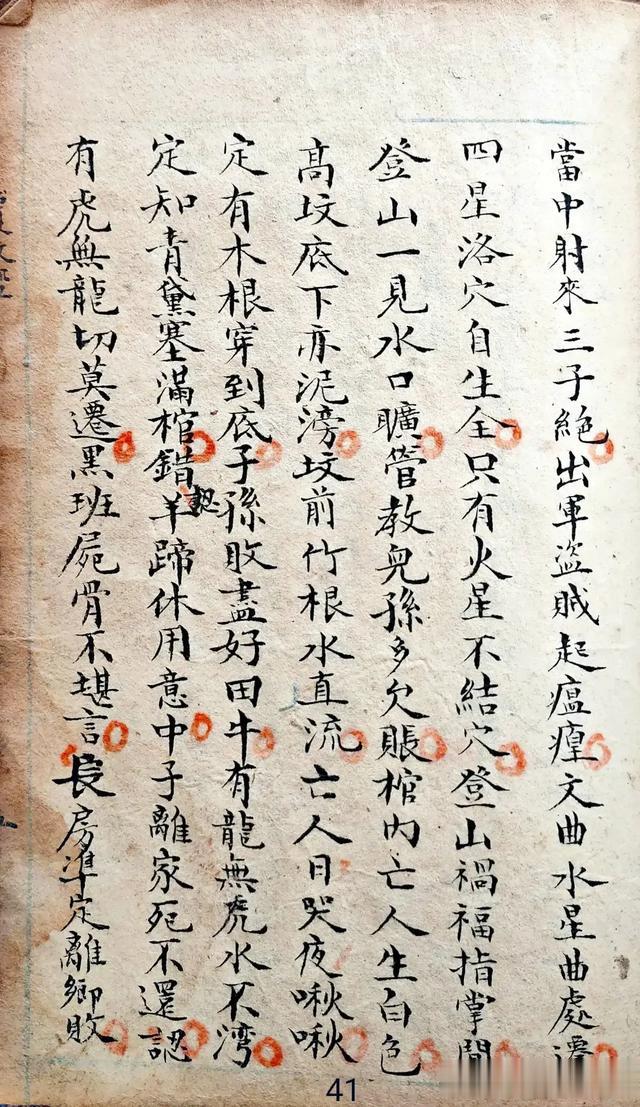 當中射來三子絶出軍盜賊起瘟瘟文曲水星曲處遷
四星洛穴自生全只有火星不結穴登山禍福指掌間
登山一見水口曠管教兒孫多欠賬棺內亡人生白色
髙坟底下亦泥滂坟前竹根水直流亡人日哭夜啾啾
定有木根穿到底子孫敗盡好田牛有龍無虎水不湾
定知青黛塞滿棺錯羊蹄休用意中子離家死不還認
有虎無龍切莫遷黑班屍骨不堪言長房準定離鄉敗
41